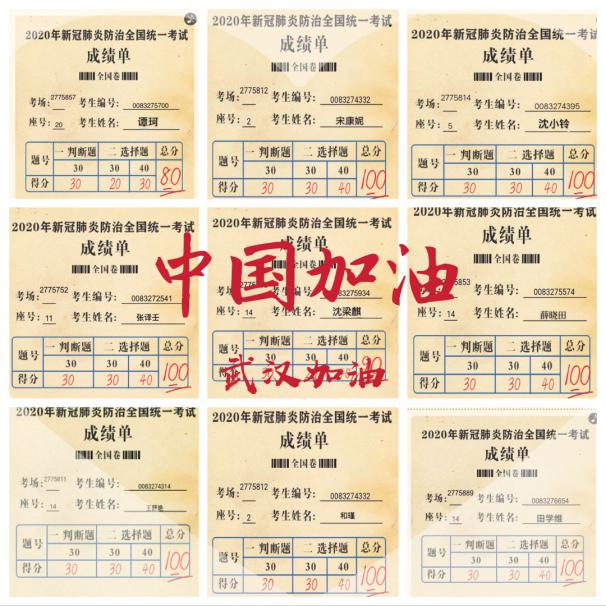 2020年新冠肺炎防治全国统一考试
成绩单
全国卷
考场: 2775857 考生编号: 0083275700
座号: 20 考生姓名: 谭珂
题号 一 判断题 二 选择题 总分
30 30 40
得分 30 20 30 80
2020年新冠肺炎防治全国统一考试
成绩单
全国卷
考场: 2775812 考生编号: 0083274332
座号: 2 考生姓名: 宋康妮
题号 一 判断题 二 选择题 总分
30 30 40
得分 30 30 40 100
2020年新冠肺炎防治全国统一考试
成绩单
全国卷
考场: 2775814 考生编号: 0083274395
座号: 5 考生姓名: 沈小铃
题号 一 判断题 二 选择题 总分
30 30 40
得分 30 30 40 100
2020年新冠肺炎防治全国统一考试
成绩单
全国卷
考场: 2775752 考生编号: 0083272541
座号: 11 考生姓名: 张译壬
题号 一 判断题 二 选择题 总分
30 30 40
得分 30 30 40 100
2020年新冠肺炎防治全国统一考试
成绩单
全国卷
考生编号: 0083275934
座号: 14 考生姓名: 沈梁麒
题号 一 判断题 二 选择题 总分
30 30 40
得分 30 30 40 100
2020年新冠肺炎防治全国统一考试
成绩单
全国卷
考生编号: 0083275574
座号: 14 考生姓名: 薛晓田
题号 一 判断题 二 选择题 总分
30 30 40
得分 30 30 40 100
中国加油
武汉加油
2020年新冠肺炎防治全国统一考试
成绩单
全国卷
考场: 2775811 考生编号: 0083274314
座号: 14 考生姓名:
题号 一 判断题 二 选择题 总分
30 30 40
得分 30 30 40 100
2020年新冠肺炎防治全国统一考试
成绩单
全国卷
考场: 2775812 考生编号: 0083274332
座号: 2 考生姓名: 和瑾
题号 一 判断题 二 选择题 总分
30 30 40
得分 30 30 40 100
2020年新冠肺炎防治全国统一考试
成绩单
全国卷
考场: 2775889 考生编号: 0083276654
座号: 14 考生姓名: 田学维
题号 一 判断题 二 选择题 总分
30 30 40
得分 30 30 40 100